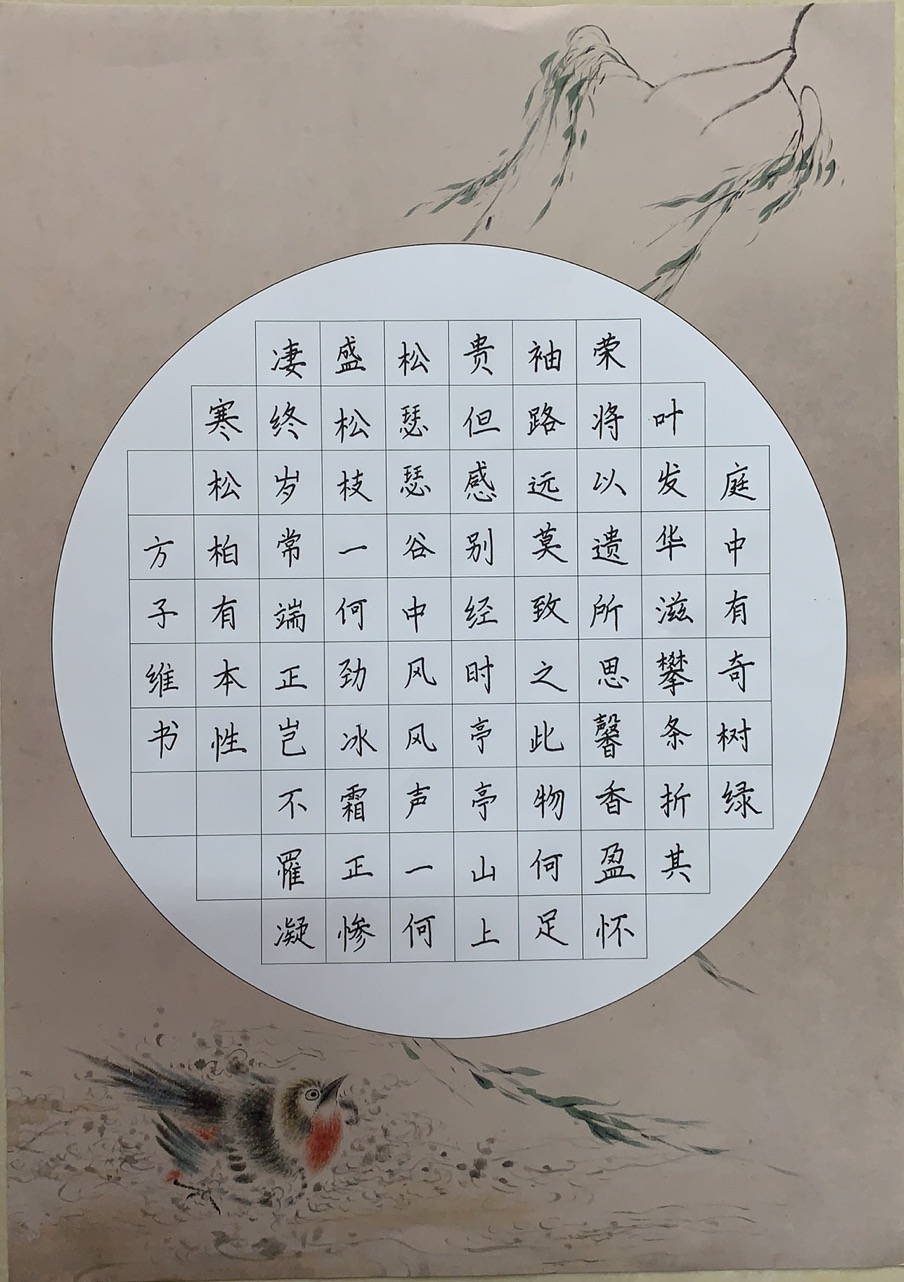 庭中有奇树绿
叶发华滋攀条折其
荣将以遗所思馨香盈怀
袖路远莫致之此物何足
贵但感别经时亭亭山上
松瑟瑟谷中风风声一何
盛松枝一何劲冰霜正惨
凄终岁常端正岂不罹凝
寒松柏有本性
方子维书